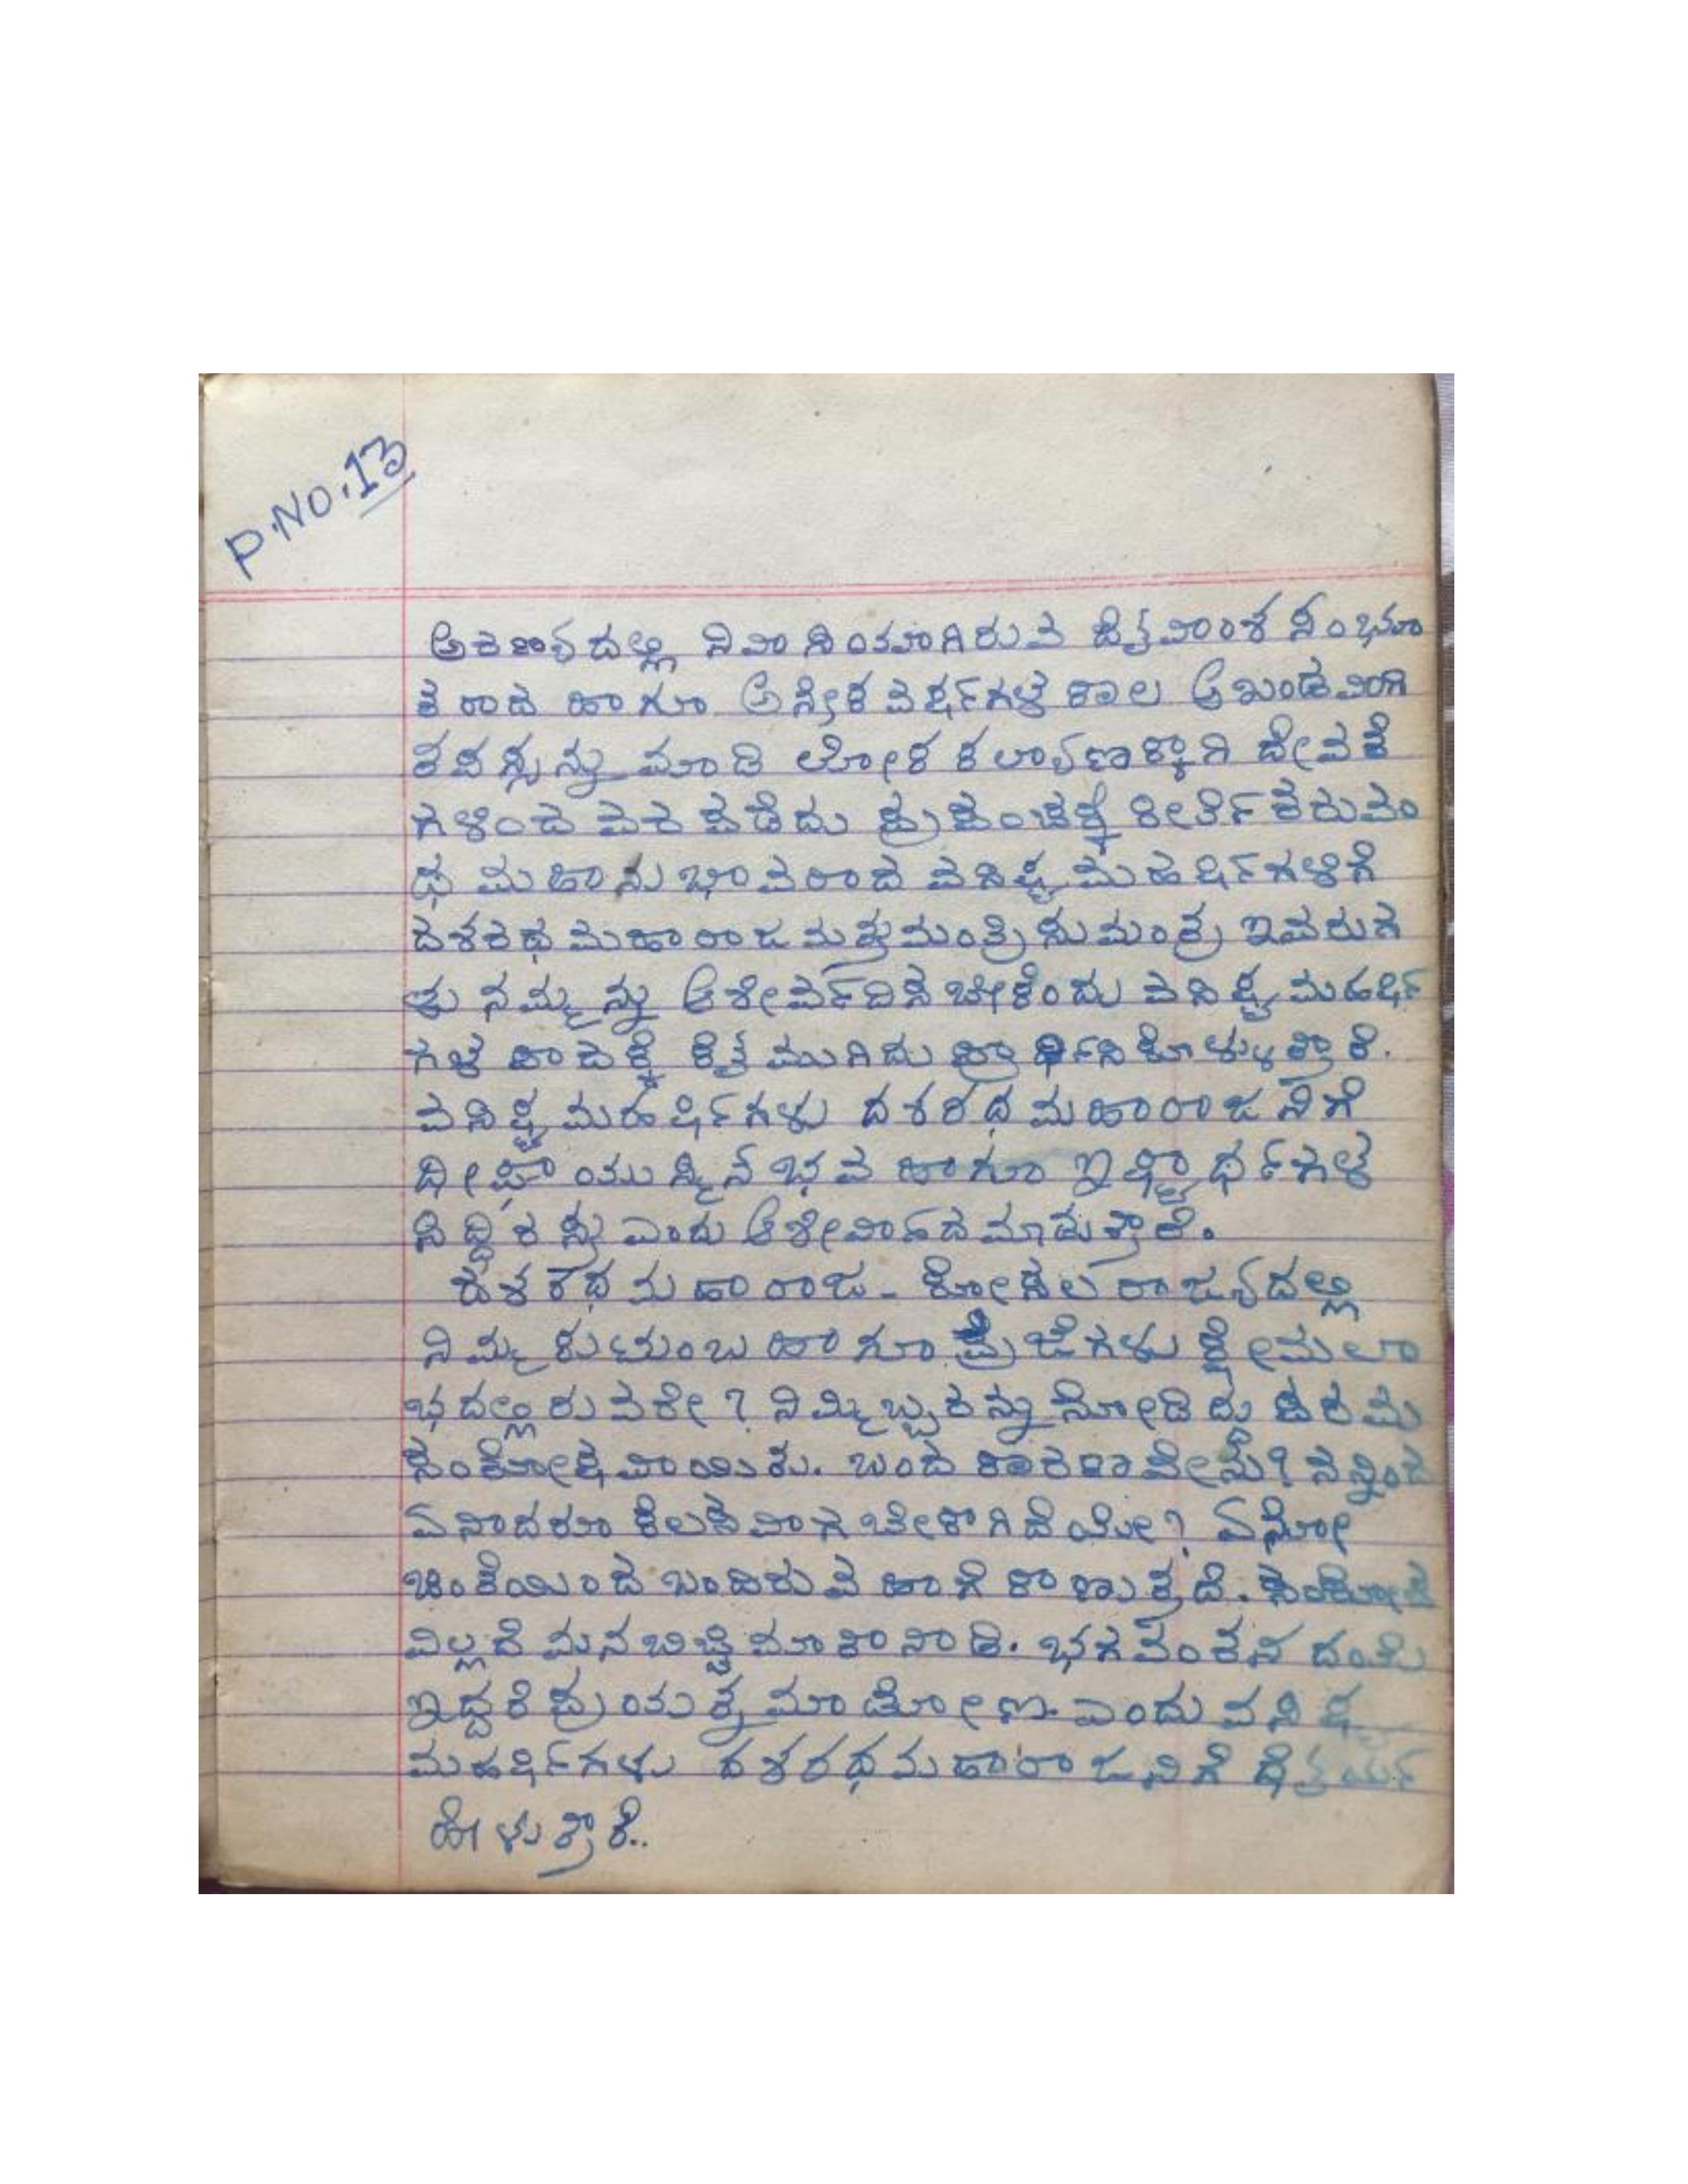 P.NO.13
ಅರಣ್ಯದಲ್ಲಿ ನಿವಾಸಿಯಾಗಿರುವ ದೈವಾಂಶ ಸಂಭೂ
ತರಾದ ಹಾಗೂ ಅನೇಕ ವರ್ಷಗಳ ಕಾಲ ಅಖಂಡವಾಗಿ
ತಪಸ್ಸನ್ನು ಮಾಡಿ ಲೋಕ ಕಲ್ಯಾಣಕ್ಕಾಗಿ ದೇವತೆ
ಗಳಿಂದ ವರ ಪಡೆದು ಪ್ರಪಂಚಕ್ಕೆ ಕೀರ್ತಿ ತರುವಂ
ಥ ಮಹಾನುಭಾವರಾದ ವಸಿಷ್ಠ ಮಹರ್ಷಿಗಳಿಗೆ
ದಶರಥ ಮಹಾರಾಜ ಮತ್ತು ಮಂತ್ರಿ ಸುಮಂತ್ರ ಇವರುಗ
ಳು ನಮ್ಮನ್ನು ಆಶೀರ್ವದಿಸಬೇಕೆಂದು ವಸಿಷ್ಠ ಮಹರ್ಷಿ
ಗಳ ಪಾದಕ್ಕೆ ಕೈ ಮುಗಿದು ಪ್ರಾರ್ಥಿಸಿಕೊಳ್ಳುತ್ತಾರೆ.
ವಸಿಷ್ಠ ಮಹರ್ಷಿಗಳು ದಶರಥ ಮಹಾರಾಜನಿಗೆ
ದೀರ್ಘಾಯುಸ್ಮಾನ್ ಭವ ಹಾಗೂ ಇಷ್ಟಾರ್ಥಗಳ
ಸಿದ್ಧಿರಸ್ತು ಎಂದು ಆಶೀರ್ವಾದ ಮಾಡುತ್ತಾರೆ.
ದಶರಥ ಮಹಾರಾಜ - ಕೋಸಲ ರಾಜ್ಯದಲ್ಲಿ
ನಿಮ್ಮ ಕುಟುಂಬ ಹಾಗೂ ಪ್ರಜೆಗಳು ಕ್ಷೇಮಲಾ
ಭದಲ್ಲಿರುವರೇ? ನಿಮ್ಮಿಬ್ಬರನ್ನು ನೋಡಿದ್ದು ಪರಮ
ಸಂತೋಷವಾಯಿತು. ಬಂದ ಕಾರಣವೇನು? ನನ್ನಿಂದ
ಏನಾದರೂ ಕೆಲಸವಾಗಬೇಕಾಗಿದೆಯೇ? ಏನೋ
ಚಿಂತೆಯಿಂದ ಬಂದಿರುವ ಹಾಗೆ ಕಾಣುತ್ತದೆ. ಸಂಕೋಚ
ವಿಲ್ಲದೆ ಮನಬಿಚ್ಚಿ ಮಾತಾನಾಡಿ. ಭಗವಂತನ ದಯೆ
ಇದ್ದರೆ ಪ್ರಯತ್ನ ಮಾಡೋಣ ಎಂದು ವಸಿಷ್ಠ
ಮಹರ್ಷಿಗಳು ದಶರಥ ಮಹಾರಾಜನಿಗೆ ಧೈರ್ಯ
ಹೇಳುತ್ತಾರೆ..